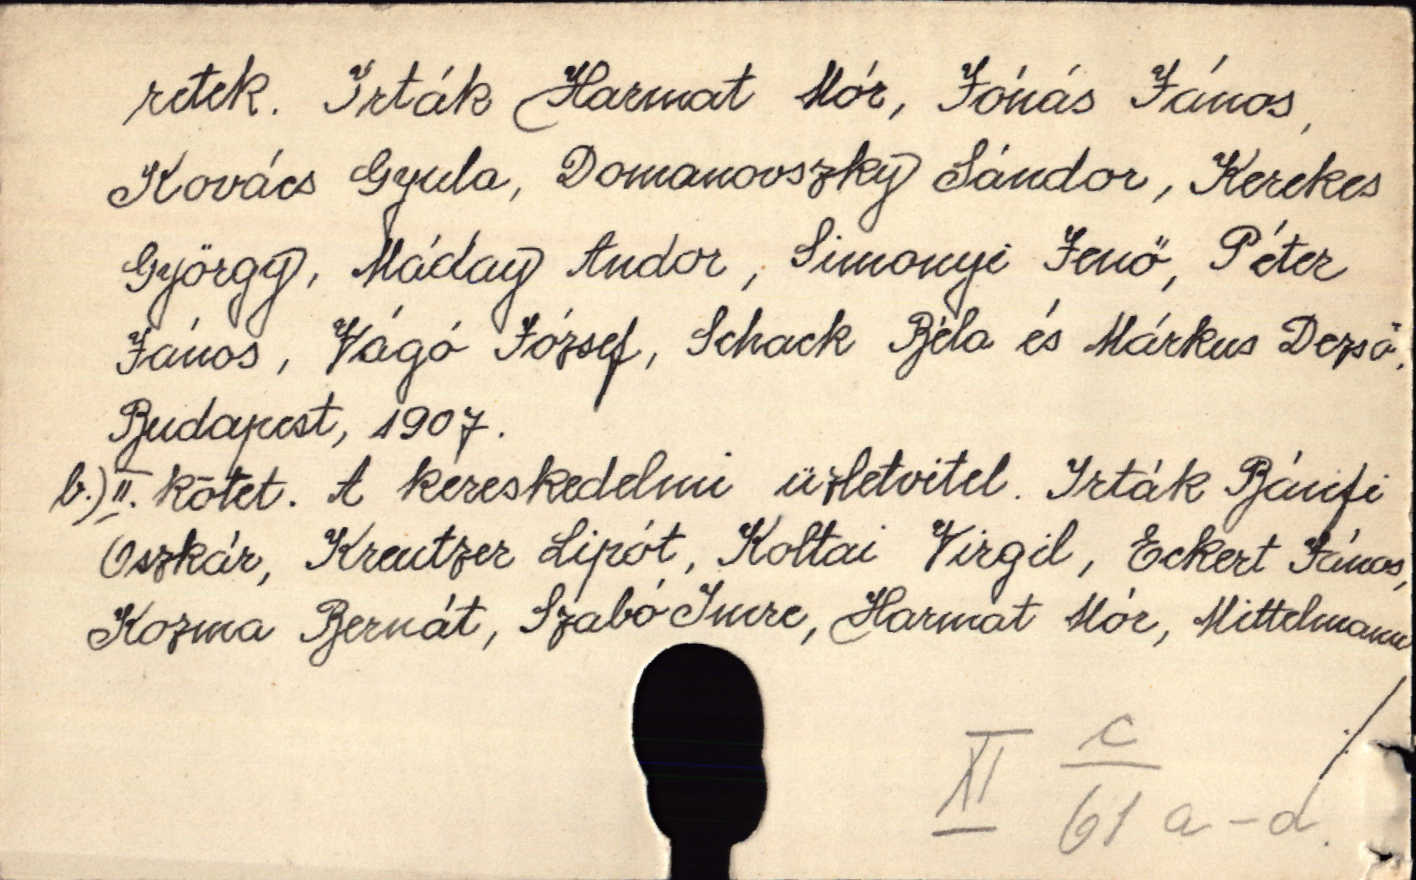 retek. Irták Harmat Mór, Jónás János,
Kovács Gyula, Domanovszky Sándor, Kerekes
György, Máday Andor, Simonyi Jenő, Péter
János, Vágó József, Schack Béla és Márkus Dezső.
Budapest, 1907.
b.) II. kötet. A kereskedelmi üzletvitel. Irták Bánfi
Oszkár, Kreutzer Lipót, Koltai Virgil, Eckert János,
Kozma Bernát, Szabó Imre, Harmat Mór, Mittelmann
XI c/61 a-d.